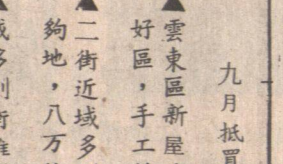 九月抵買
▲雲東區新屋
好區，手工
▲二街近域多
夠地，八万